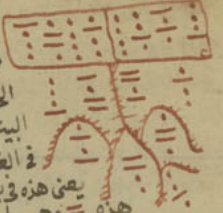 الح
البيت
في الع
يعني هذه في
هذه